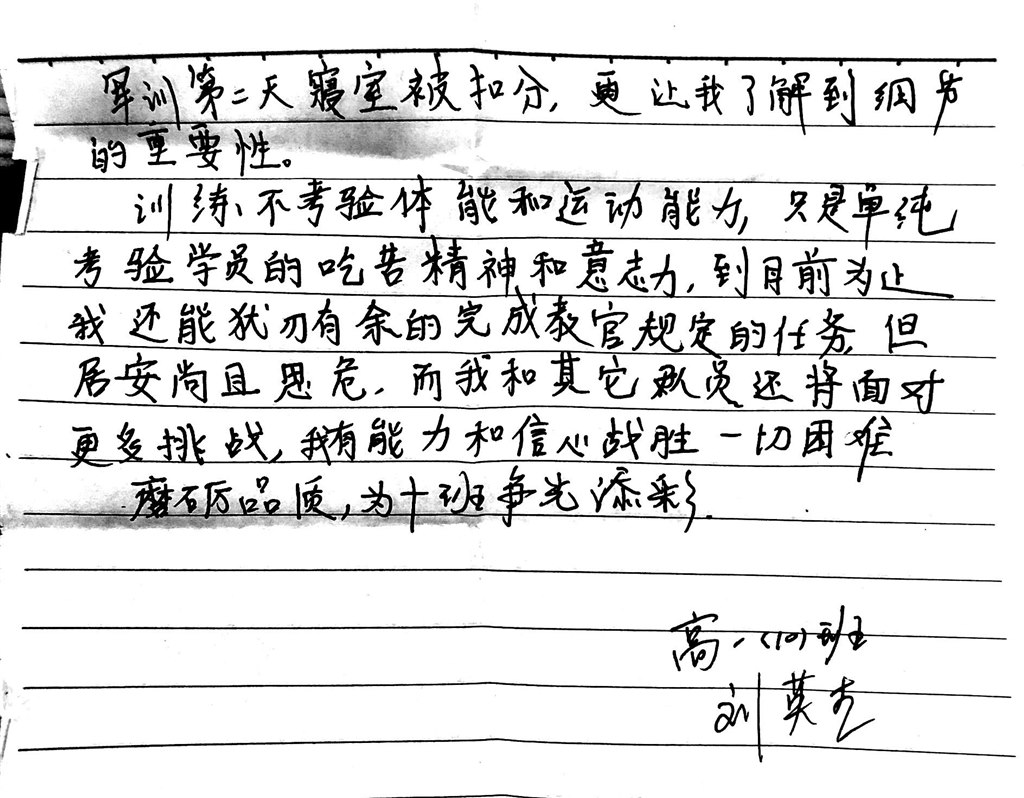 军训第二天寝室被扣分,更让我了解到细节
的重要性。
训练不考验体能和运动能力,只是单纯
考验学员的吃苦精神和意志力,到目前为止
我还能犹刃有余的完成教官规定的任务,但
居安尚且思危,而我和其它队员还将面对
更多挑战,我有能力和信心战胜一切困难
磨砺品质,为十班争光添彩.
高一(10)班
刘英杰